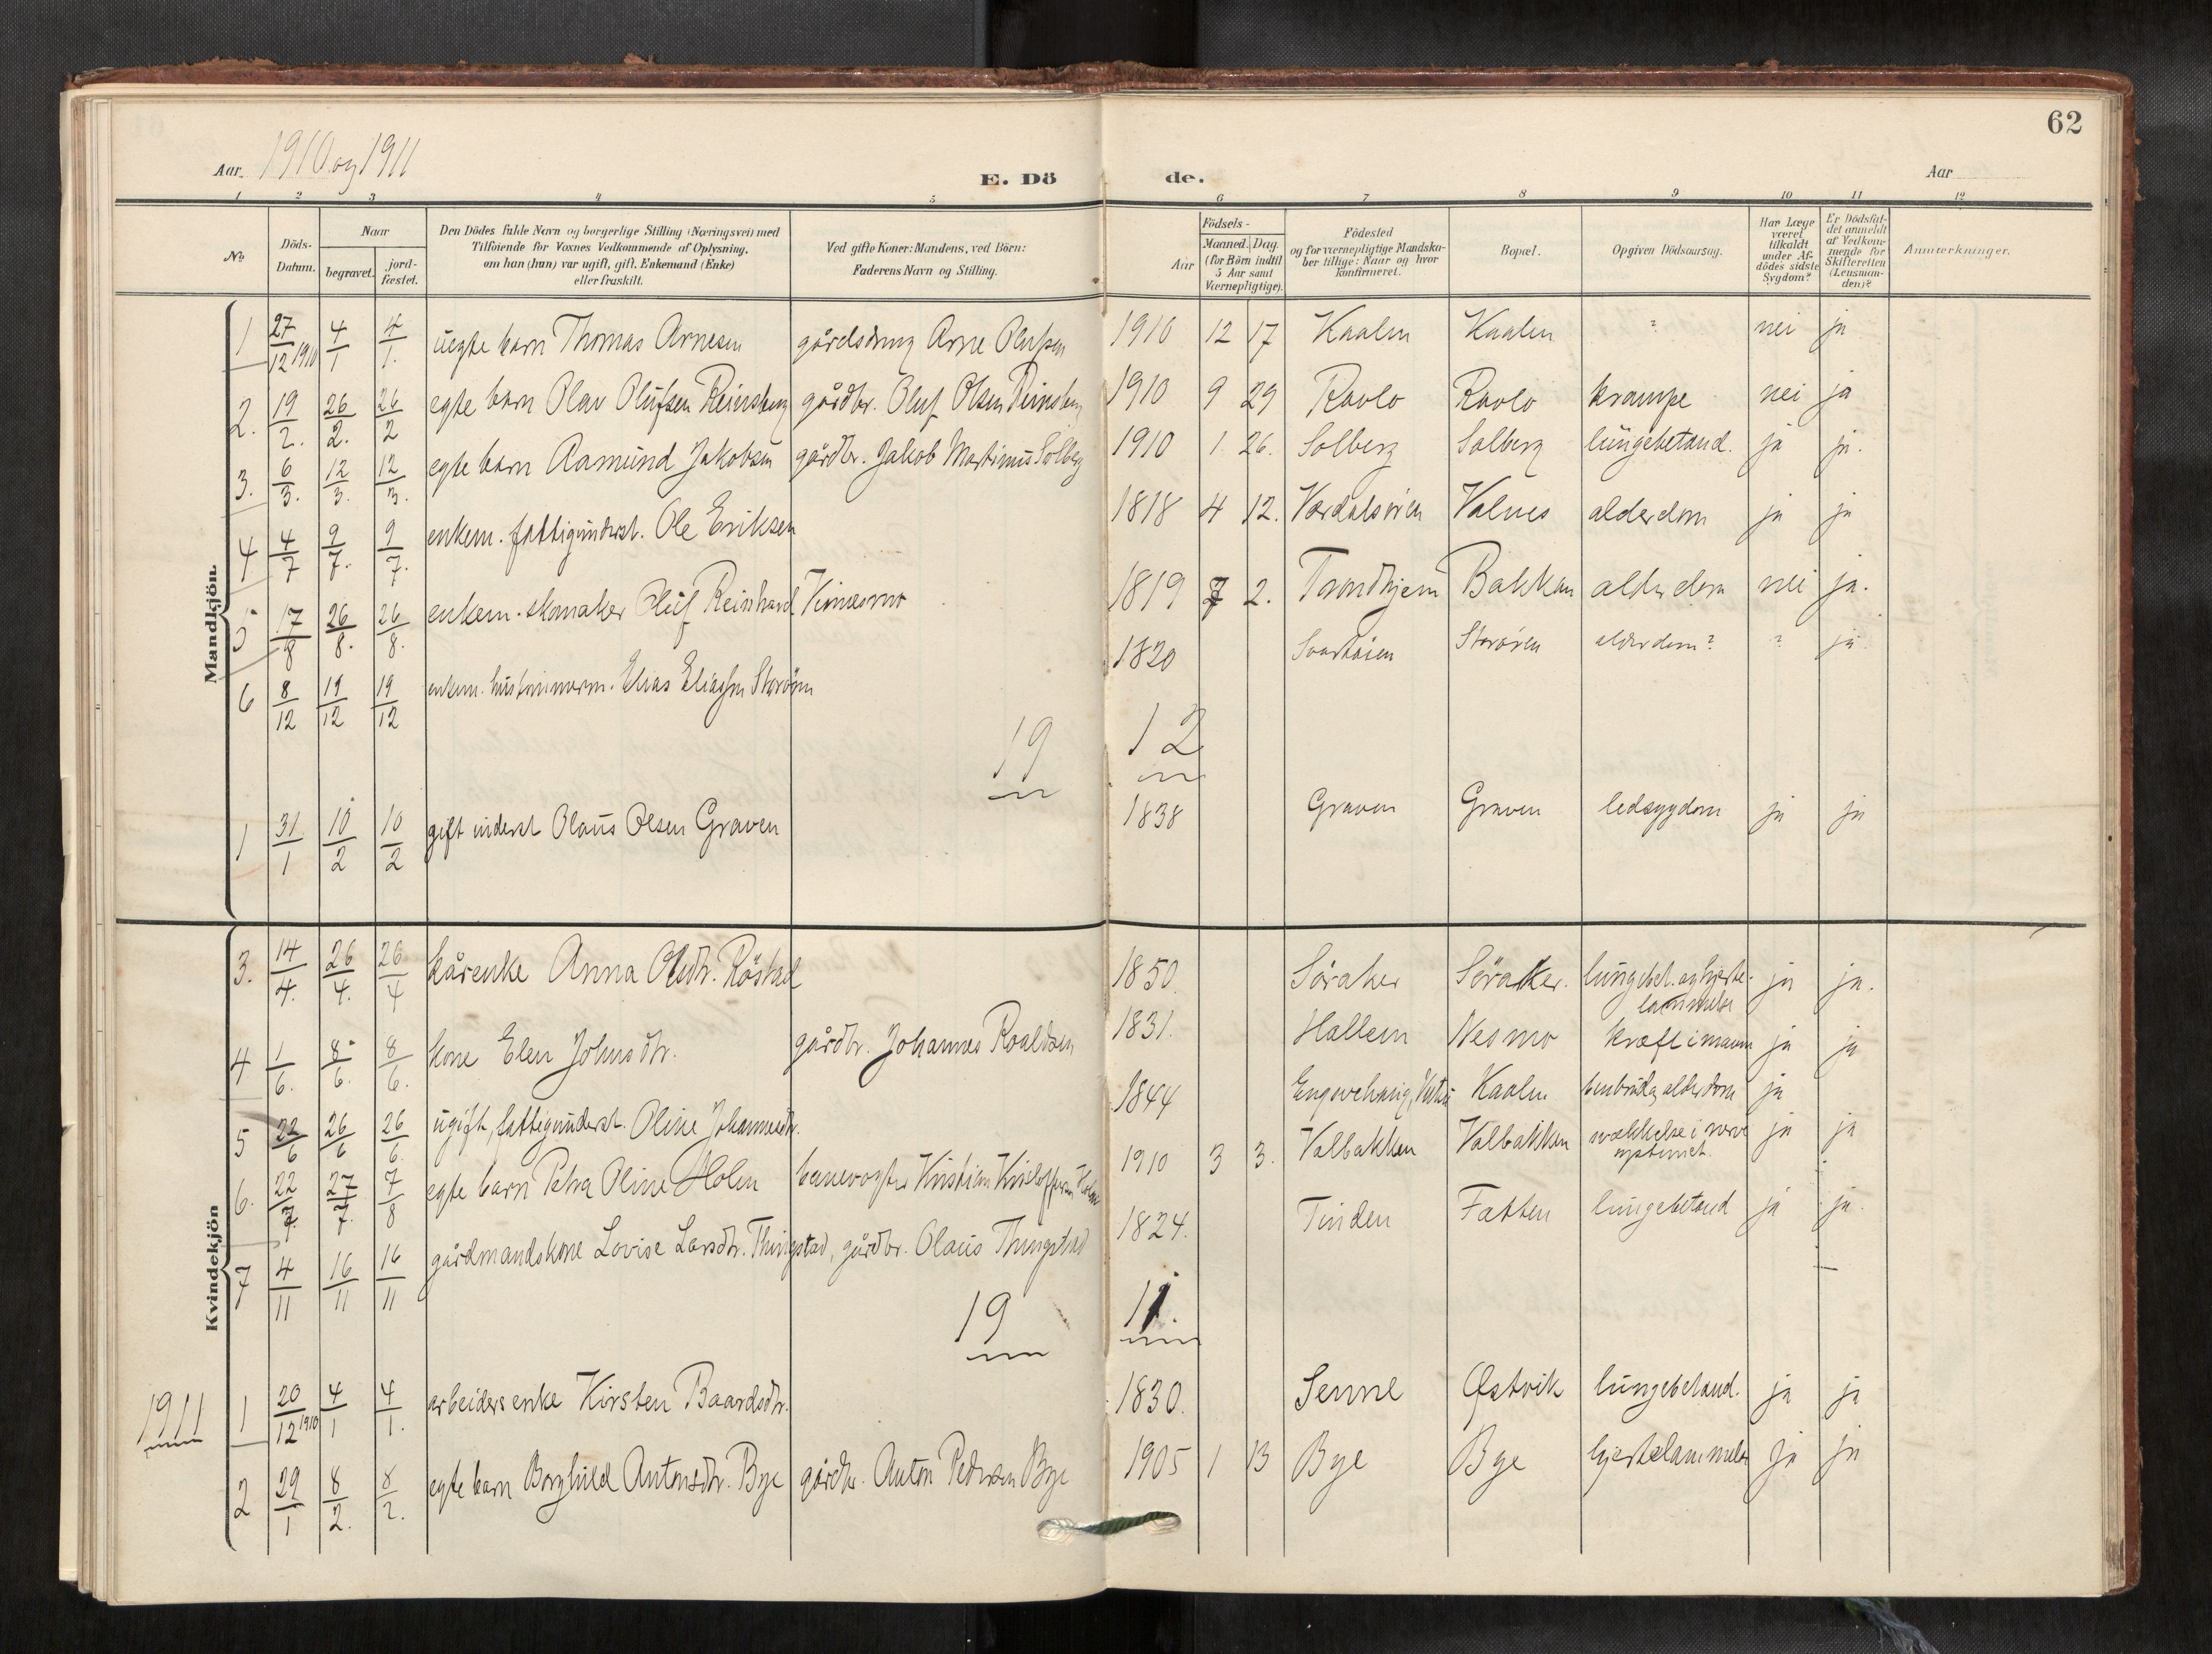 62
Aar 1910 og 1911
E. Dö de.
Aar
1 2 3 4 5 6 7 8 9 10 11 12
No
Döds-Datum.
Naar
begravet.
jord-fæstet.
Den Dödes fulde Navn og borgerlige Stilling (Næringsvei) med
Tilföiende for Voxnes Vedkommende af Oplysning,
om han (hun) var ugift, gift, Enkemand (Enke)
eller fraskilt.
Ved gifte Koner: Mandens, ved Börn:
Faderens Navn og Stilling.
Födsels-
Aar
Maaned. Dag.
(for Börn indtil
5 Aar samt
Værnepligtige).
Födested
og for værnepligtige Mandska-
ber tillige: Naar og hvor
konfirmeret.
Bopæl.
Opgiven Dödsaarsag.
Har Læge
været
tilkaldt
under Af-
dödes sidste
Sygdom?
Er Dödsfal-
det anmeldt
af Vedkom-
mende for
Skifteretten
(Lensman-
den)?
Anmærkninger.
Mandkjön.
1 27/12 1910 4/1 4/1. uegte barn Thomas Arnesen gårdsdreng Arne Olufsen 1910 12 17 Kaalen Kaalen ? nei ja
2. 19/2. 26/2. 26/2 egte barn Olav Olufsen Reinsberg gårdbr. Oluf Olsen Reinsberg 1910 9 29 Rovlo Rovlo krampe nei ja
3. 6/3. 12/3. 12/3. egte barn Aamund Jakobsen gårdbr. Jakob Martinus Solberg 1910 1. 26. Solberg Solberg lungebetænd. ja ja.
4 4/7 9/7. 9/7. enkem. fattigunderst. Ole Eriksen 1818 4 12. Værdalsøren Valnes alderdom ja ja
5 17/8 26/8. 26/8. enkem. skomaker Oluf Reinhard Kvinesmo 1819 7 2. Trondhjem Bakkan alderdom nei ja.
6 8/12 19/12 19/12 enkem. Elias Eliassen Storøren 1820 Svartåsen Storøren alderdom? ? ja
19 12
1 31/1 10/2 10/2 gift inderst Olaus Olsen Graven 1838 Graven Graven ledsygdom ja ja
Kvindekjön
3. 14/4. 26/4. 26/4 kårenke Anna Olsdtr. Röstad 1850. Söraker Söraker. lungebet. og hjerte-
lammelse ja ja.
4 1/6. 8/6. 8/6. kone Elen Johnsdtr. gårdbr. Johannes Roaldsen 1831. Hallem Nesmo kræft i maven ja ja
5 22/6 26/6 26/6. ugift, fattigunderst. Oline Johannesdtr. 1844 Kaalen benbrud og alderdom ja
6. 22/7. 27/7. 7/8 egte barn Petra Oline Holen banevogter Kristian Kristoffersen Holen 1910 3 3. Valbakken Valbakken svækkelse i nerve
systemet. ja ja
7 4/11 16/11 16/11 gårdmandskone Lovise Larsdtr. Thingstad, gårdbr. Olaus Thingstad 1824. Tinden Fætten lungebetænd ja ja.
19 11.
1911
1 20/12 1910 4/1 4/1. arbeidersenke Kirsten Baardsdtr. 1830. Senne Østvik lungebetænd. ja ja
2 29/1 8/2. 8/2. egte barn Borghild Antonsdtr. Bye gårdbr. Anton Pedersen Bye 1905 1 13 Bye Bye hjertelammelse ja ja